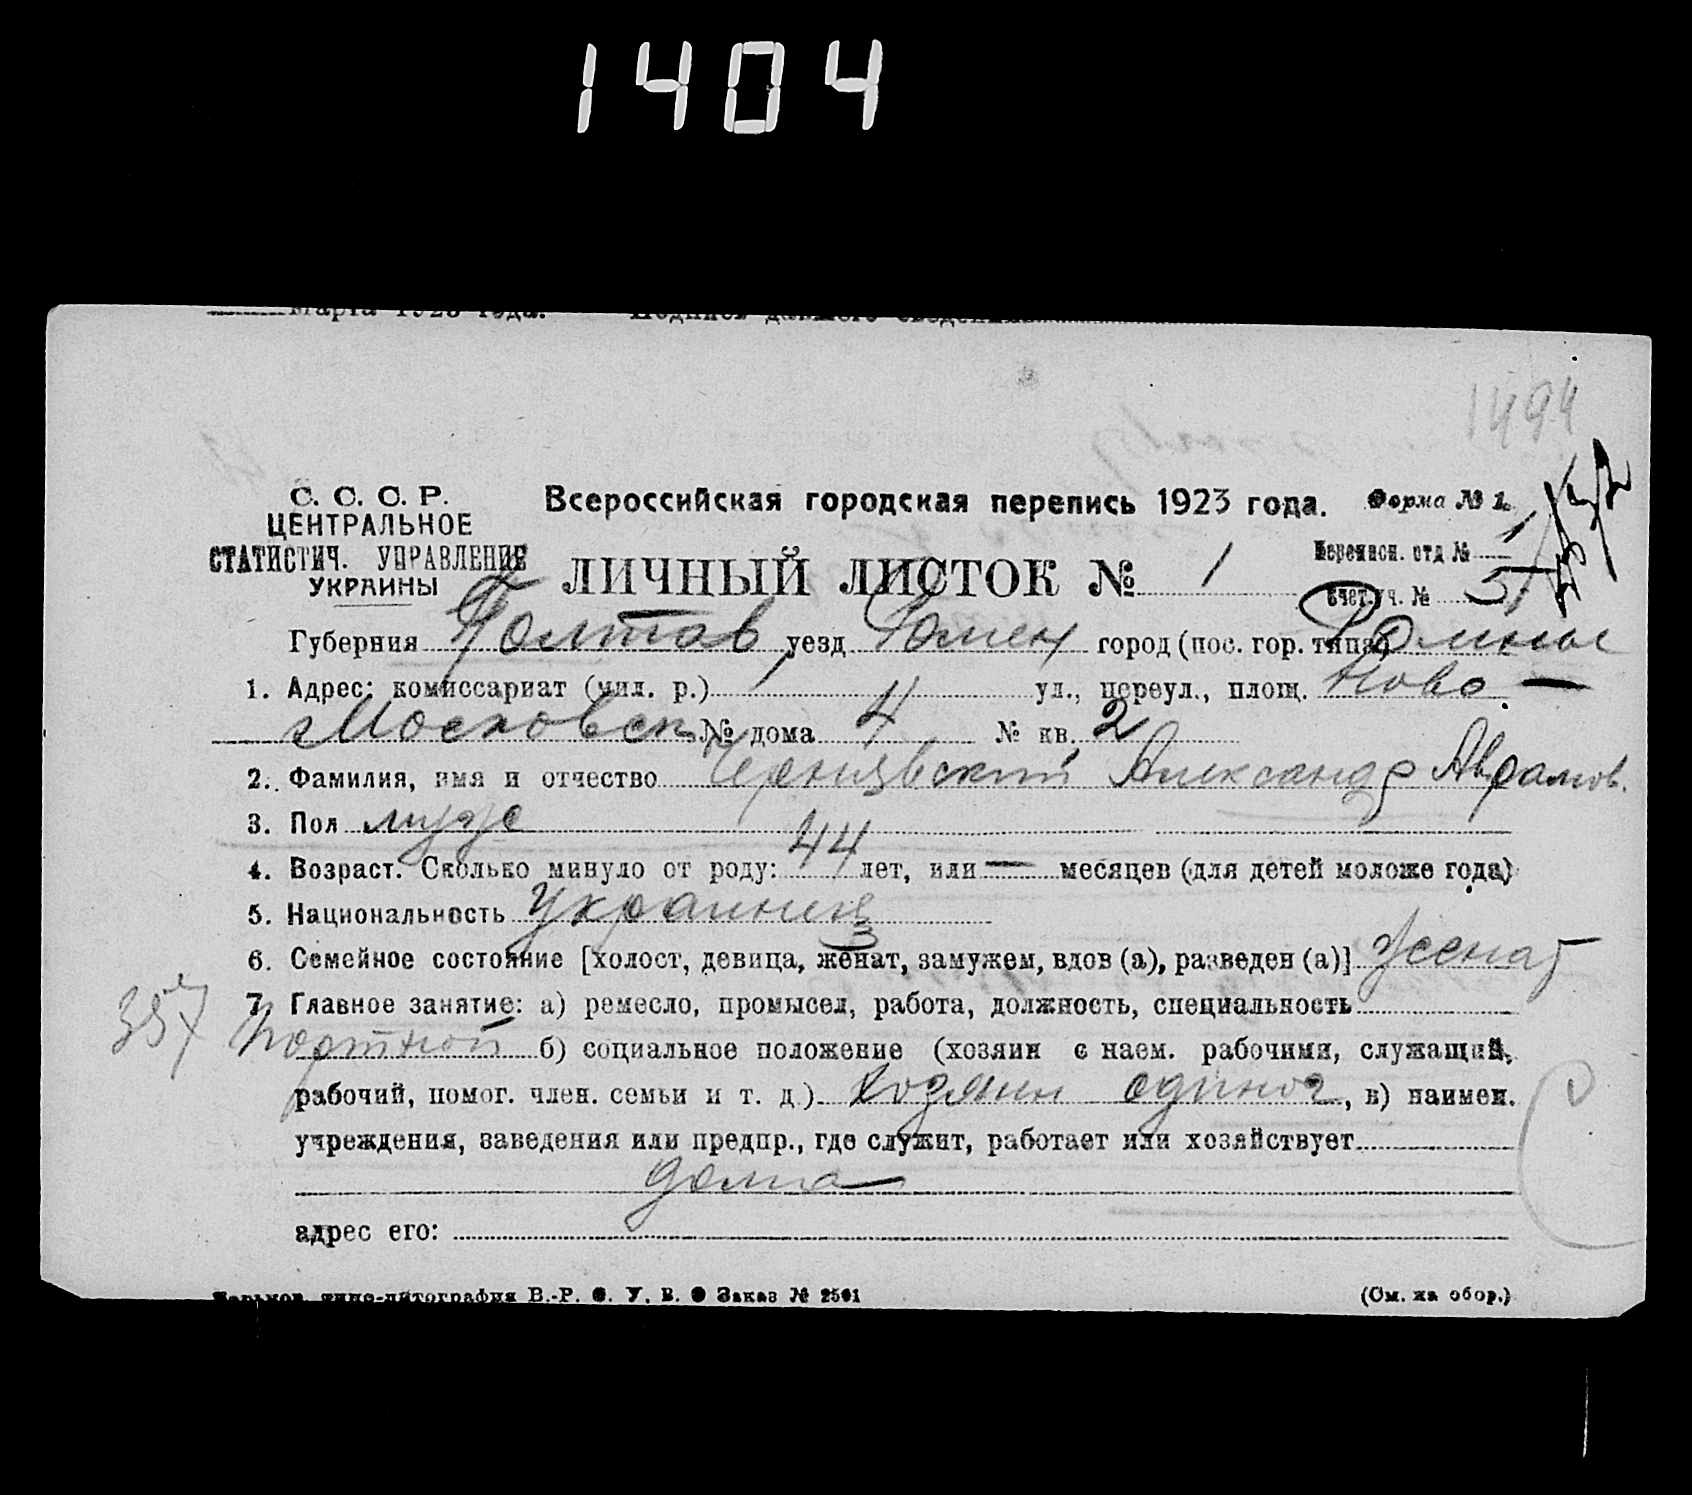 1404
Марта 1923 года. Подпись давшего сведения
1494
С. С. С. Р.
ЦЕНТРАЛЬНОЕ
СТАТИСТИЧ. УПРАВЛЕНИЕ
УКРАИНЫ
Всероссийская городская перепись 1923 года.
Форма № 1.
ЛИЧНЫЙ ЛИСТОК № 1
Переписн. отд № 1
Счет. уч. № 5
Губерния Полтав уезд Ромен город (пос. гор. типа) Ромны
1. Адрес: комиссариат (мил. р.) 1 ул., переул., площ. Ново —
Московск № дома 4 № кв. 2
2. Фамилия, имя и отчество Чернявский Александр Аврамов.
3. Пол муж
4. Возраст. Сколько минуло от роду: 44 лет, или — месяцев (для детей моложе года)
5. Национальность Украинец
3
6. Семейное состояние [холост, девица, женат, замужем, вдов (а), разведен (а)] женат
7. Главное занятие: а) ремесло, промысел, работа, должность, специальность
357 Портной б) социальное положение (хозяин с наем. рабочими, служащий,
рабочий, помог. член. семьи и т. д.) хозяин одиноч, в) наимен.
учреждения, заведения или предпр., где служит, работает или хозяйствует
дома
адрес его:
Харьков, цинко-литография В.-Р. Ф. У. В. О Заказ № 2501
(См. на обор.)